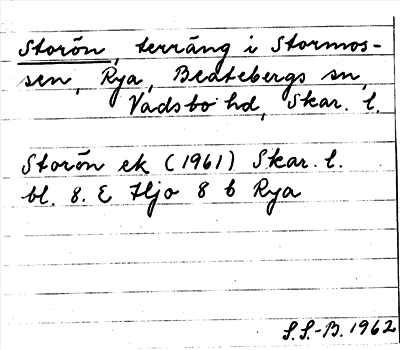 Storön, terräng i Stormos-
sen, Rya, Beatebergs sn,
Vadsbo hd, Skar. l.
Storön ek (1961) Skar. l.
bl. 8. E Hjo 8 b Rya
S.S.-B. 1962